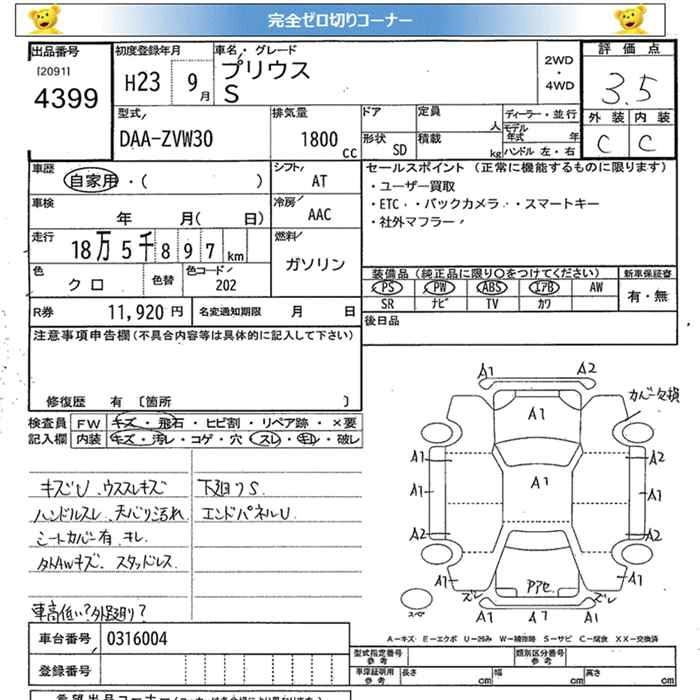 完全ゼロ切りコーナー
出品番号
[2091]
4399
初度登録年月
H23 9月
車名・グレード
プリウス
S
2WD
・
4WD
評価点
3.5
外装 内装
C C
型式
DAA-ZVW30
排気量
1800 cc
ドア
定員
人
形状
SD
積載
kg
ディーラー・並行
モデル年式 年
ハンドル 左・右
車歴
自家用・( )
シフト
AT
車検
年 月( 日)
冷房
AAC
走行
18万5千897km
燃料
ガソリン
色
クロ
色替
色コード
202
R券
11,920 円
名変通知期限 月 日
セールスポイント (正常に機能するものに限ります)
・ユーザー買取
・ETC・・バックカメラ・・スマートキー
・社外マフラー
装備品 (純正品に限り○をつけてください)
新車保証書
PS PW ABS エアB AW
SR ナビ TV カワ
有・無
後日品
注意事項申告欄 (不具合内容等は具体的に記入して下さい)
修復歴 有 〔箇所 〕
検査員
記入欄
FW キズ・飛石・ヒビ割・リペア跡・×要
内装 キズ・汚レ・コゲ・穴・スレ・キレ・破レ
キズU、ウススレキズ
ハンドルスレ、天バリ汚れ
シートカバー有、キレ
外AWキズ、スタッドレス
車高低い?外廻り?
下廻りS
エンドパネルU
A1 A2
カバー欠損
A1
A1 A2
A1
A1 A1
A2 A2
アセ
A1 A1
ズレ ズレ
A1 A7 A1
スペア
A-キズ E-エクボ U-凹み W-補修跡 S-サビ C-腐食 XX-交換済
車台番号
0316004
登録番号
型式指定番号
参考
類別区分番号
参考
車庫証明用
参考
長さ cm
幅 cm
高さ cm